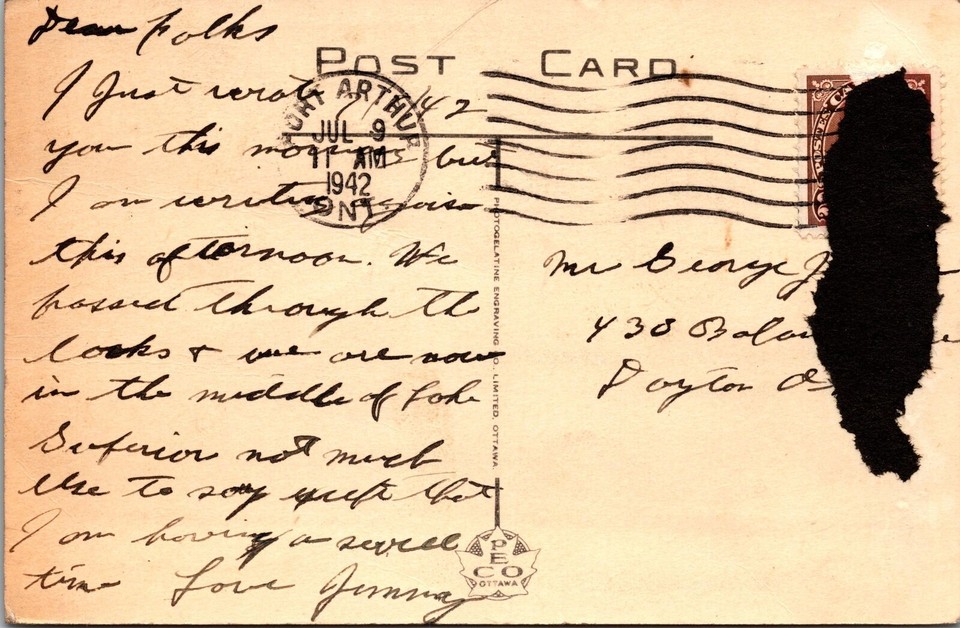 Dear Folks
POST CARD
I Just wrote
you this morning but
I am writing again
this afternoon. We
passed through the
locks & we are now
in the middle of Lake
Superior not much
use to say except that
I am having a swell
time Love Jimmy
PORT ARTHUR
JUL 9
11 AM
1942
ONT
POSTES CA
PHOTOGELATINE ENGRAVING CO. LIMITED, OTTAWA.
Mr George J
438
Dayton
PECO
OTTAWA